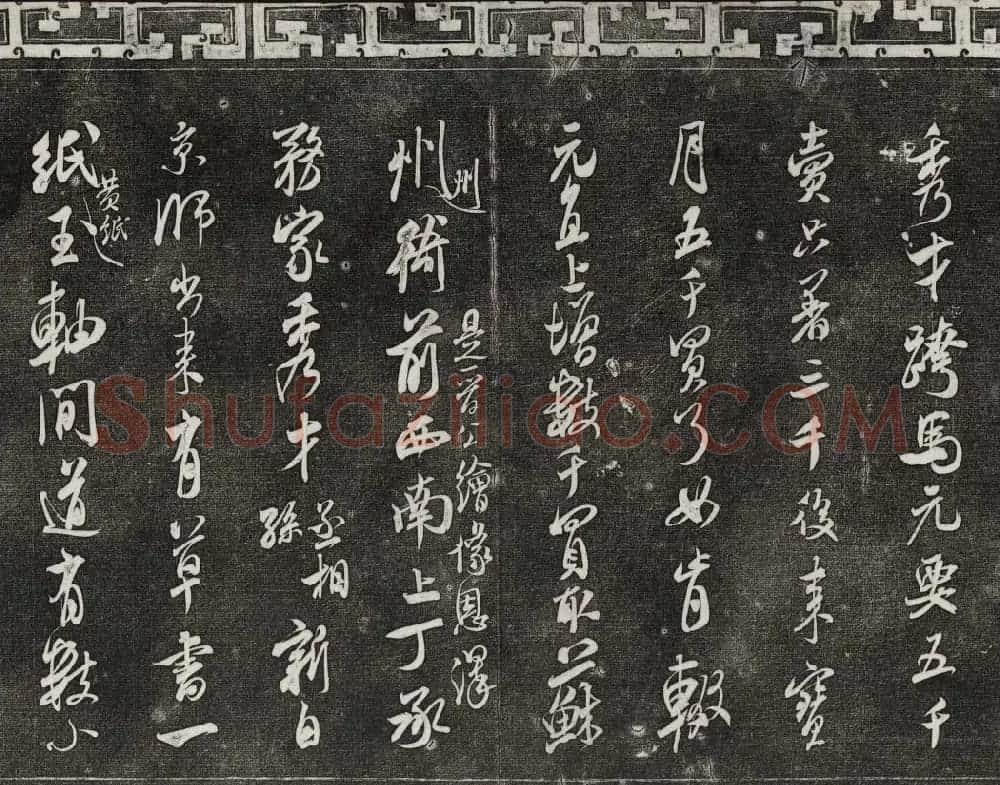 秀才跨馬元要五千
賣只著三千後来寶
月五千買了如肯輟
元直上增數千買取蘇
州州衙前西南上丁承
是一公繪像恩澤
務家秀才丞相孫新自
京師出来有草書一
紙黄紙玉軸間道者數小
Shufaziliao.COM